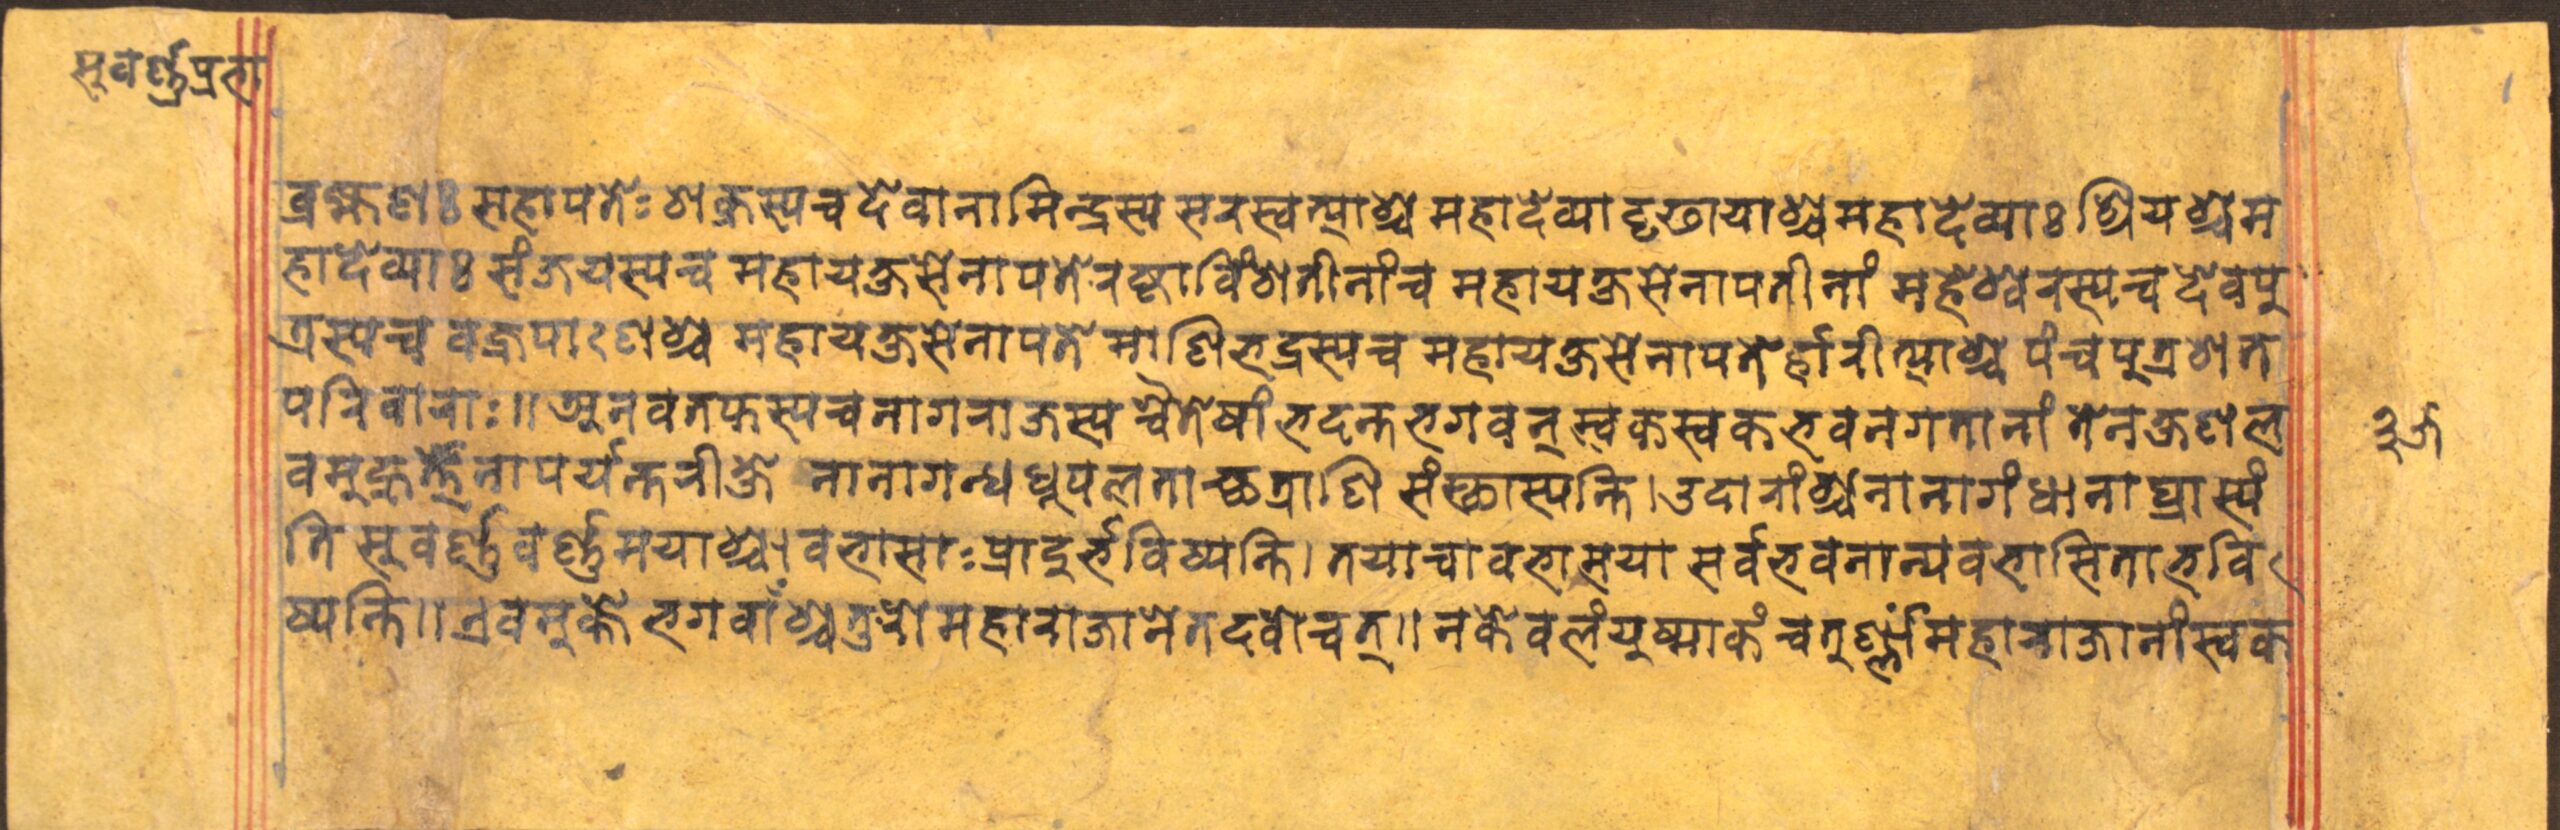 सुवर्ण्णप्रभा
ब्रह्मणः सहापतेः शक्रस्य च देवानामिन्द्रस्य सरस्वत्याश्च महादेव्या दृढायाश्च महादेव्याः श्रियश्च म
हादेव्याः संजयस्य च महायक्षसेनापतेरष्टाविंशतीनांच महायक्षसेनापतीनां महेश्वरस्य च देवपु
त्रस्य च वज्रपाःणश्च महायक्षसेनापते माणिभद्रस्य च महायक्षसेनापतेर्हारीत्याश्च पंचपुत्रशत
परिवाराः॥ अनवतफ्तस्य च नागराजस्य चैतेषां भदन्त भगवन् स्वकस्वकभवनगतानां तेन क्षणल
वमुहूर्त्तेनापर्यन्तरीक्षे नानागन्धधूपलताच्छत्राणि संस्थास्यन्ति। उदारांश्च नानागंधाना घ्रास्यं
ति सुवर्ण्णवर्ण्णमयाश्चावभासाः प्रादुर्भविष्यन्ति। तया चावभासया सर्वभवनान्यवभासिता भवि
ष्यन्ति॥ एवमुक्ते भगवांश्चतुरो महाराजानेतदवोचत्॥ न केवलं युष्माकं चतुर्ण्णां महाराजानां स्वक
३५